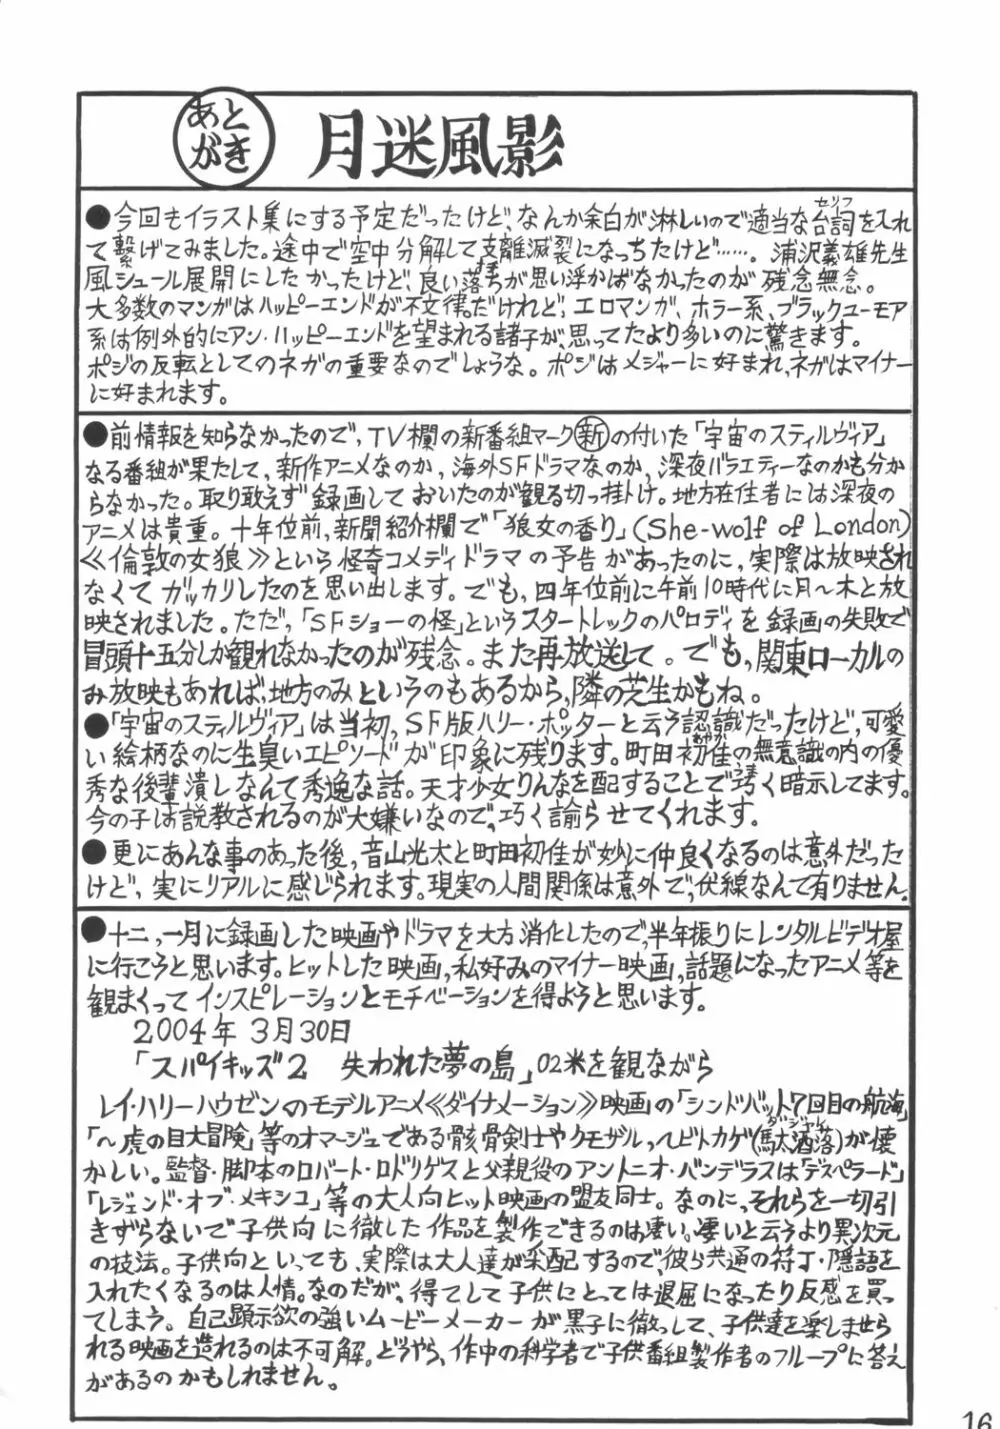 あとがき
月迷風影
●今回もイラスト集にする予定だったけど、なんか余白が淋しいので適当な台詞を入れ
て繋げてみました。途中で空中分解して支離滅裂になっちたけど……。浦沢義雄先生
風シュール展開にしたかったけど、良い落ちが思い浮かばなかったのが残念無念。
大多数のマンガはハッピーエンドが不文律だけれど、エロマンガ、ホラー系、ブラックユーモア
系は例外的にアン・ハッピーエンドを望まれる諸子が、思ってたより多いのに驚きます。
ポジの反転としてのネガの重要なのでしょうな。ポジはメジャーに好まれ、ネガはマイナー
に好まれます。
●前情報を知らなかったので、TV欄の新番組マーク新の付いた「宇宙のスティルヴィア」
なる番組が果たして、新作アニメなのか、海外SFドラマなのか、深夜バラエティーなのかも分か
らなかった。取り敢えず録画しておいたのが観る切っ掛け。地方在住者には深夜の
アニメは貴重。十年位前、新聞紹介欄で「狼女の香り」(She-wolf of London)
≪倫敦の女狼≫という怪奇コメディドラマの予告があったのに、実際は放映され
なくてガッカリしたのを思い出します。でも、四年位前に午前10時代に月～木と放
映されました。ただ、「SFショーの怪」というスタートレックのパロディを録画の失敗で
冒頭十五分しか観れなかったのが残念。また再放送して。でも、関東ローカルの
み放映もあれば、地方のみというのもあるから、隣の芝生かもね。
●「宇宙のスティルヴィア」は当初、SF版ハリー・ポッターと云う認識だったけど、可愛
い絵柄なのに生臭いエピソードが印象に残ります。町田初佳の無意識の内の優
秀な後輩潰しなんて秀逸な話。天才少女りんなを配することで巧く暗示してます。
今の子は説教されるのが大嫌いなので、巧く諭らせてくれます。
●更にあんな事のあった後、音山光太と町田初佳が妙に仲良くなるのは意外だった
けど、実にリアルに感じられます。現実の人間関係は意外で、伏線なんて有りません。
●十二、一月に録画した映画やドラマを大方消化したので、半年振りにレンタルビデオ屋
に行こうと思います。ヒットした映画、私好みのマイナー映画、話題になったアニメ等を
観まくってインスピレーションとモチベーションを得ようと思います。
2004年3月30日
「スパイキッズ2 失われた夢の島」02米を観ながら
レイ・ハリーハウゼンのモデルアニメ≪ダイナメーション≫映画の「シンドバット7回目の航海」
「〜虎の目大冒険」等のオマージュである骸骨剣士やクモザル、ヘビトカゲ(駄洒落)が懐
かしい。監督・脚本のロバート・ロドリゲスと父親役のアントニオ・バンデラスは「デスペラード」
「レジェンド・オブ・メキシコ」等の大人向ヒット映画の盟友同士。なのに、それらを一切引
きずらないで子供向に徹した作品を製作できるのは凄い。凄いと云うより異次元
の技法。子供向といっても、実際は大人達が采配するので、彼ら共通の符丁・隠語を
入れたくなるのは人情。なのだが、得てして子供にとっては退屈になったり反感を買っ
てしまう。自己顕示欲の強いムービーメーカーが黒子に徹っして、子供達を楽しませら
れる映画を造れるのは不可解。どうやら、作中の科学者で子供番組製作者のフループに答え
があるのかもしれません。
16